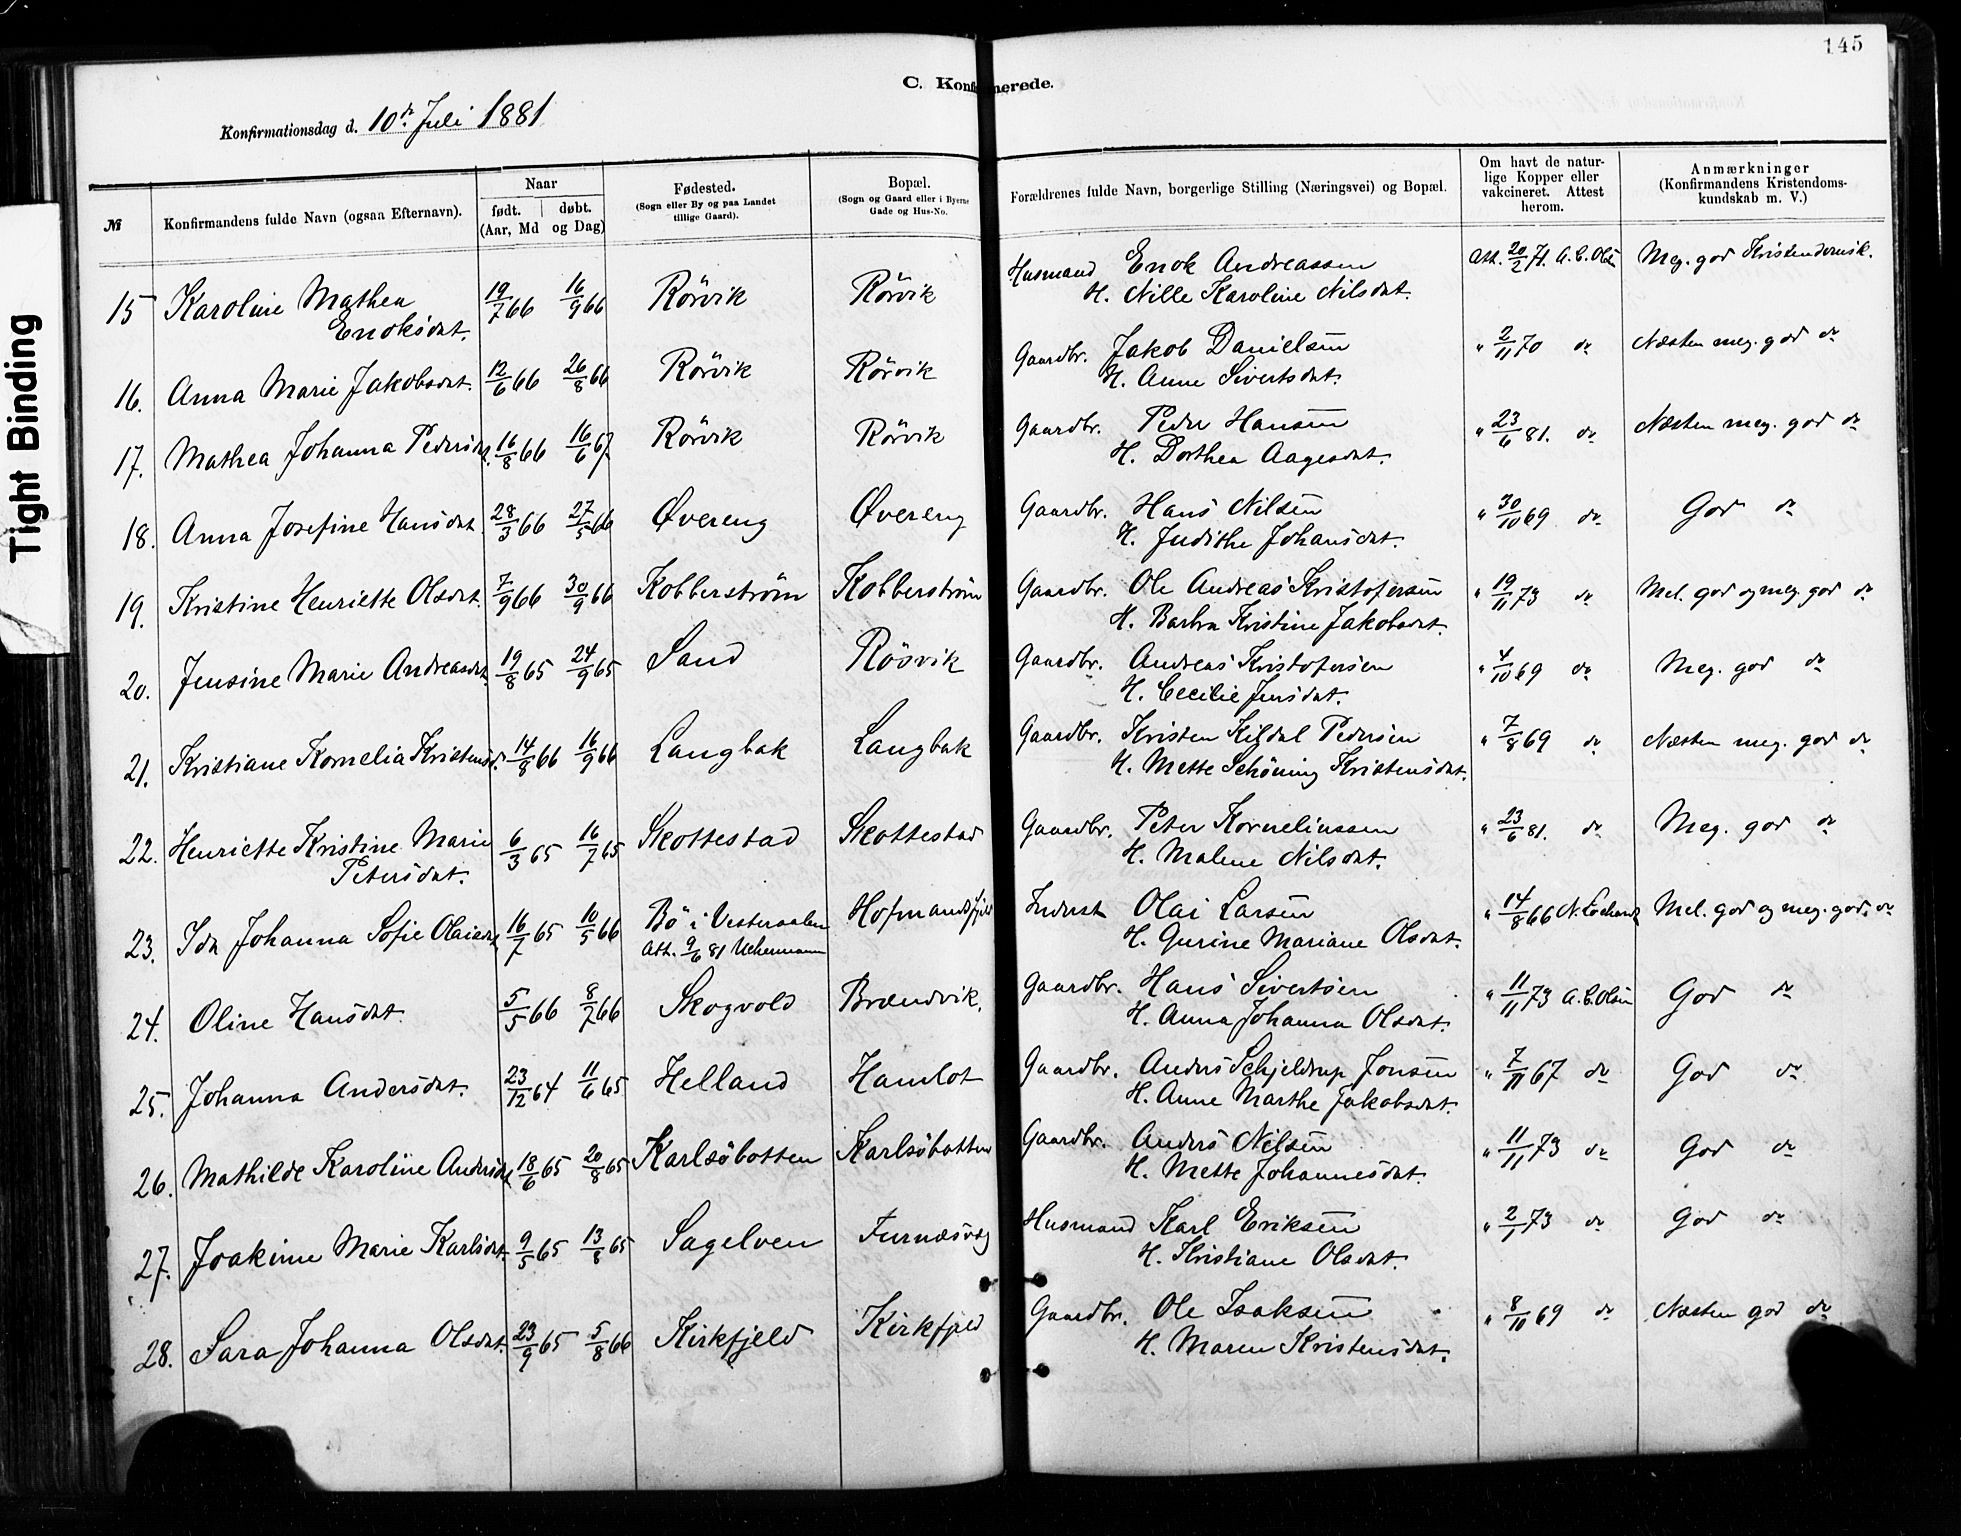 145
C. Konfirmerede.
Konfirmationsdag d. 10de Juli 1881
№ Konfirmandens fulde Navn (ogsaa Efternavn). Naar født. døbt. (Aar, Md og Dag) Fødested. (Sogn eller By og paa Landet tillige Gaard). Bopæl. (Sogn og Gaard eller i Byerne Gade og Hus-No. Forældrenes fulde Navn, borgerlige Stilling (Næringsvei) og Bopæl. Om havt de naturlige Kopper eller vakcineret. Attest herom. Anmærkninger (Konfirmandens Kristendomskundskab m. V.)
15 Karoline Mathea Enoksdat. 19/7 66 16/9 66 Rörvik Rörvik Husmand Enok Andreassen Att. 20/2 71. A. C. Olsen Meg. god Kristendomsk.
H. Nille Karoline Nilsdat.
16. Anna Marie Jakobsdat. 12/6 66 26/8 66 Rörvik Rörvik Gaardbr. Jakob Danielsen " 2/11 70 do Næsten meg. god do
H. Anne Sivertsdat.
17. Mathea Johanna Pedersdat. 16/8 66 16/6 67 Rörvik Rörvik Gaardbr. Peder Hansen " 23/6 81. do Næsten meg. god do
H. Dorthea Aagesdat.
18. Anna Josefine Hansdat 28/3 66 27/5 66 Øvereng Øvereng Gaardbr. Hans Nilsen " 30/10 69 do God do
H. Judithe Johansdat.
19. Kristine Henriette Olsdat. 7/9 66 30/9 66 Kobberström Kobberström Gaardbr. Ole Andreas Kristofersen " 19/11 73 do Mel. god og meg. god do
H. Barbra Kristine Jakobsdat.
20. Jensine Marie Andreasdat. 19/8 65 24/9 65 Sand Rösvik Gaardbr. Andreas Kristofersen " 4/10 69 do Meg. god do
H. Cecilie Jensdat.
21. Kristiane Kornelia Kristensd. 14/8 66 16/9 66 Langbak Langbak Gaardbr. Kristen Kildal Pedersen " 7/8 69 do Næsten meg. god do
H. Mette Schöning Kristensdat.
22. Henriette Kristine Marie Petersdat. 6/3 65 16/7 65 Skottestad Skottestad Gaardbr. Peter Korneliussen " 23/6 81. do Meg. god do
H. Malene Nilsdat.
23. Ida Johanna Sofie Olaisdat 16/7 65 10/5 66 Bö i Vesteraalen Hofmandsfjeld Inderst Olai Larsen " 14/8 66 Mel. god og meg. god. do
Att. 9/6 81 Uchermann H. Gurine Mariane Olsdat.
24. Oline Hansdat. 5/5 66 8/7 66 Skogvold Brændvik. Gaardbr. Hans Sivertsen " 11/11 73 A. C. Olsen God do
H. Anna Johanna Olsdat.
25. Johanna Andersdat. 23/12 64 11/6 65 Helland Hamlot Gaardbr. Anders Schjeldrup Jonsen " 7/11 67 do God do
H. Anne Marthe Jakobsdat.
26. Mathilde Karoline Andersdat 18/6 65 20/8 65 Karlsöbotten Karlsöbotten Gaardbr. Anders Nilsen " 11/11 73 do God do
H. Mette Johannesdat.
27. Joakime Marie Karlsdat. 9/5 65 13/8 65 Sagelven Furnæsvåg Husmand Karl Eriksen " 2/1 73 do God do
H. Kristiane Olsdat.
28. Sara Johanna Olsdat. 23/9 65 5/8 66 Kirkfjeld Kirkfjeld Gaardbr. Ole Isaksen " 8/10 69 do Næsten god do
H. Maren Kristensdat.
Tight Binding